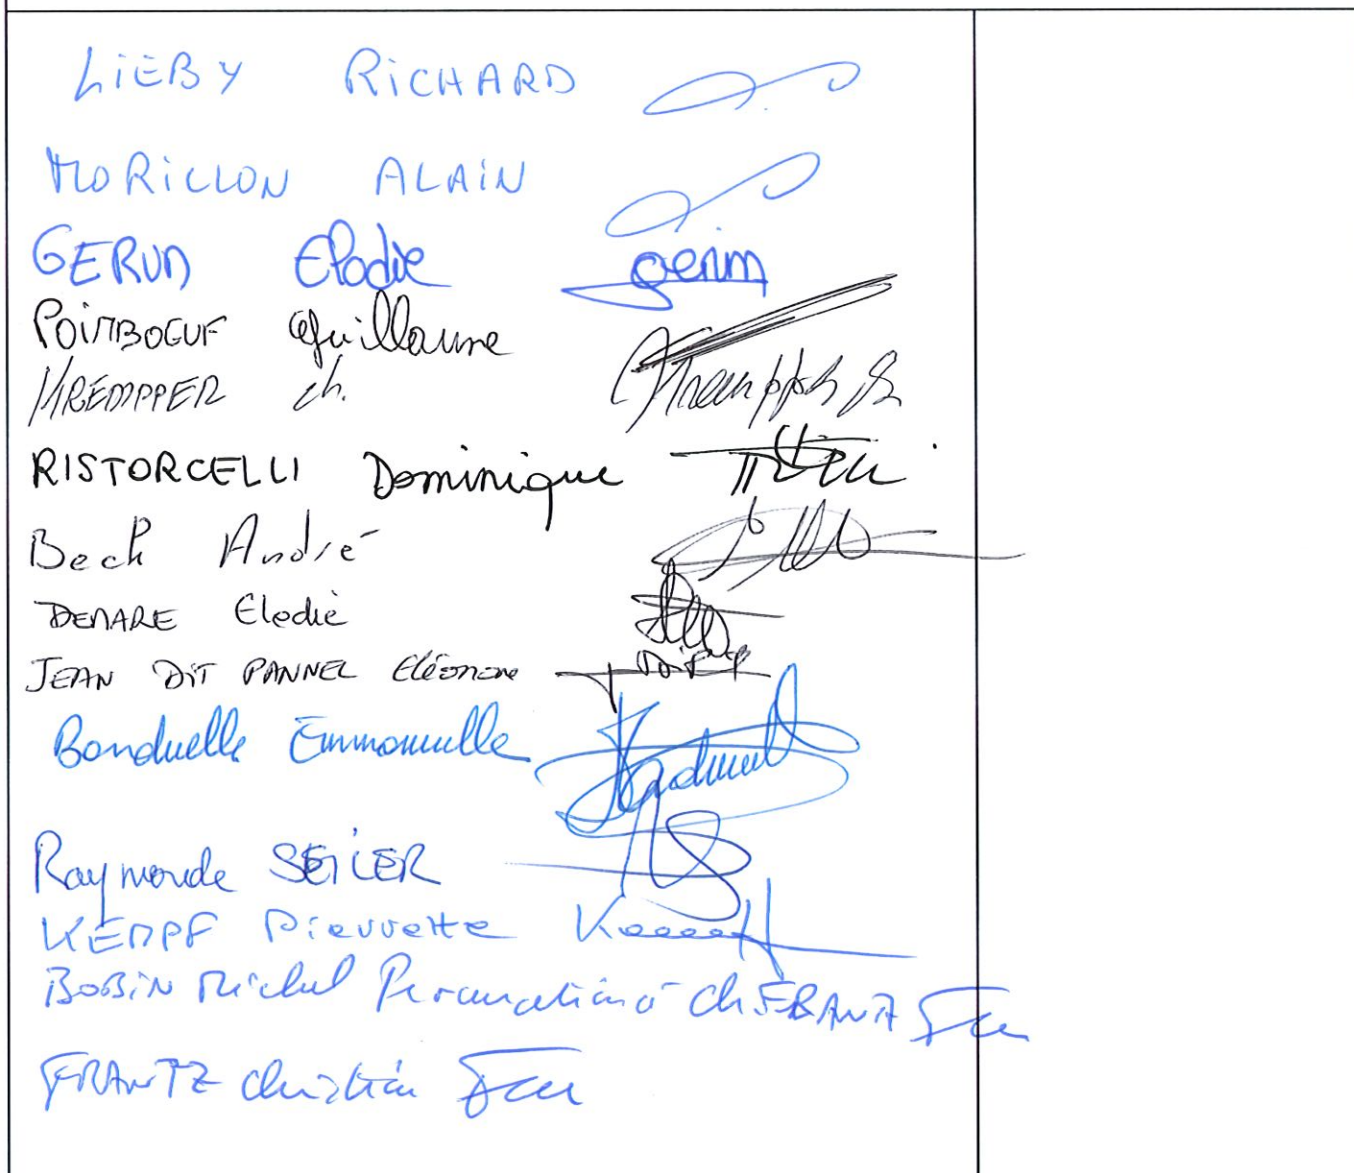 LIEBY RICHARD
MORILLON ALAIN
GERUM Elodie
POIMBOEUF Guillaume
KREMPPER ch.
RISTORCELLI Dominique
Beck André
DEMARE Elodie
JEAN DIT PANNEL Eléonore
Bonduelle Emmanuelle
Raymonde SEILER
KEMPF Pierrette
BOBIN Michel Procuration à Ch FRANTZ
FRANTZ Christian